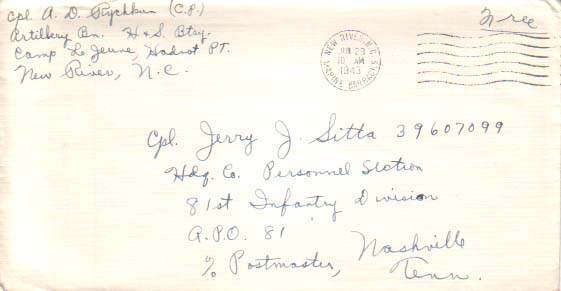 Cpl. A. D. Rychkun (C.P.)
Artillery Bn. H & S. Btry.
Camp Le Jeune, Hadnot PT.
New River, N.C.
Free
NEW RIVER, N.C.
JUN 29
10 AM
1943
MARINE BARRACKS
Cpl. Jerry J. Sitta 39607099
Hdq. Co. Personnel Section
81st Infantry Division
A.P.O. 81
% Postmaster, Nashville
Tenn.